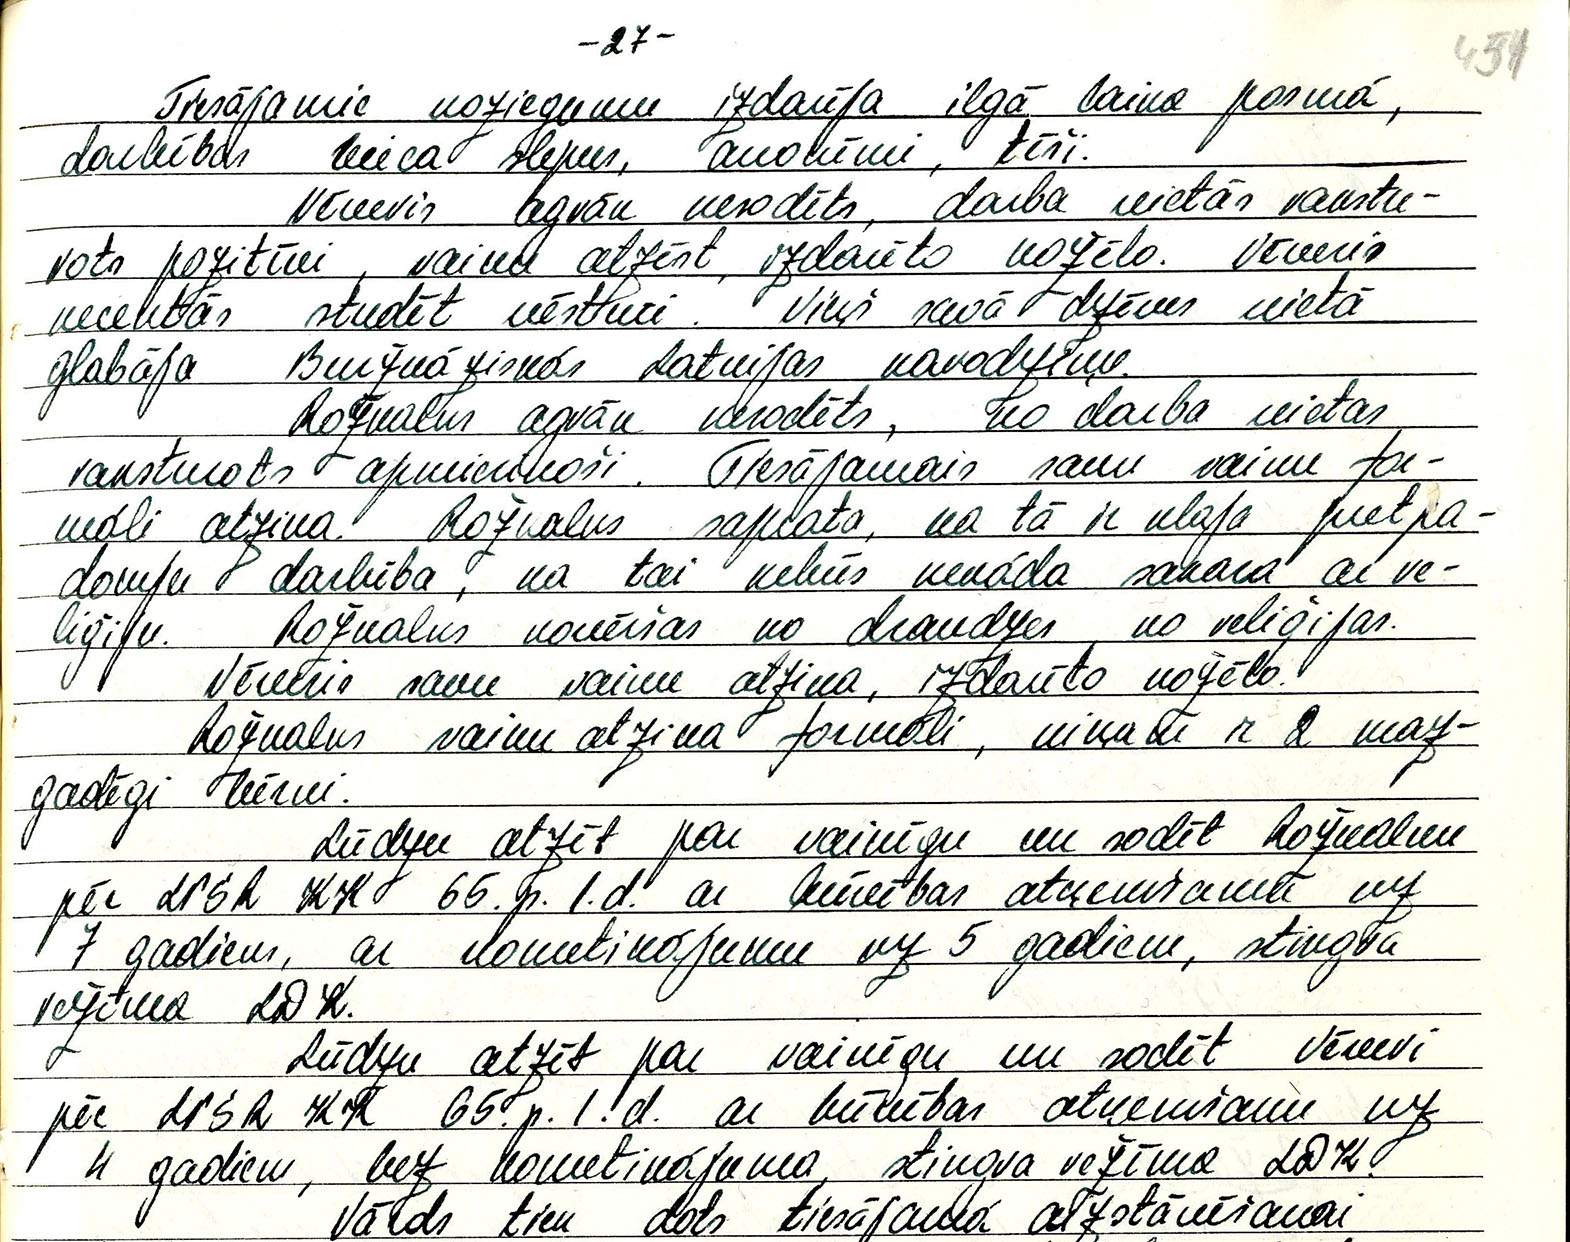 -27-
451
Tiesājamie noziegumu izdarīja ilgā laika posmā,
darbības veica slepus, anonīmi, tīši.
Vēveris agrāk nesodīts, darba vietās rakstu-
rots pozitīvi, vainu atzīst, izdarīto nožēlo. Vēveris
necentās studēt vēsturi. Viņš savā dzīves vietā
glabāja Buržuāziskās Latvijas karodziņu.
Rožkalns agrāk nesodīts, no darba vietas
raksturots apmierinoši. Tiesājamais savu vainu for-
māli atzina. Rožkalns saprata, ka tā ir klaja pretpa-
domju darbība, ka tai nebūs nekāda sakara ar re-
liģiju. Rožkalns novēršas no draudzes, no reliģijas.
Vēveris savu vainu atzina, izdarīto nožēlo.
Rožkalns vainu atzina formāli, viņam ir 2 maz-
gadīgi bērni.
Lūdzu atzīt par vainīgu un sodīt Rožkalnu
pēc LPSR KK 65.p. 1.d. ar brīvības atņemšanu uz
7 gadiem, ar nometinājumu uz 5 gadiem, stingra
režīma LDK.
Lūdzu atzīt par vainīgu un sodīt Vēveri
pēc LPSR KK 65.p. 1.d. ar brīvības atņemšanu uz
4 gadiem, bez nometinājuma, stingra režīma LDK.
Vārds tiek dots tiesājamā aizstāvēšanai